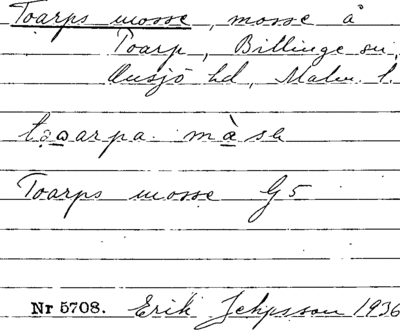 Toarps mosse, mosse å
Toarp, Billinge sn,
Onsjö hd, Malm. l.
tọωarpa màsa
Toarps mosse G5
Nr 5708. Erik Jeppsson 1936